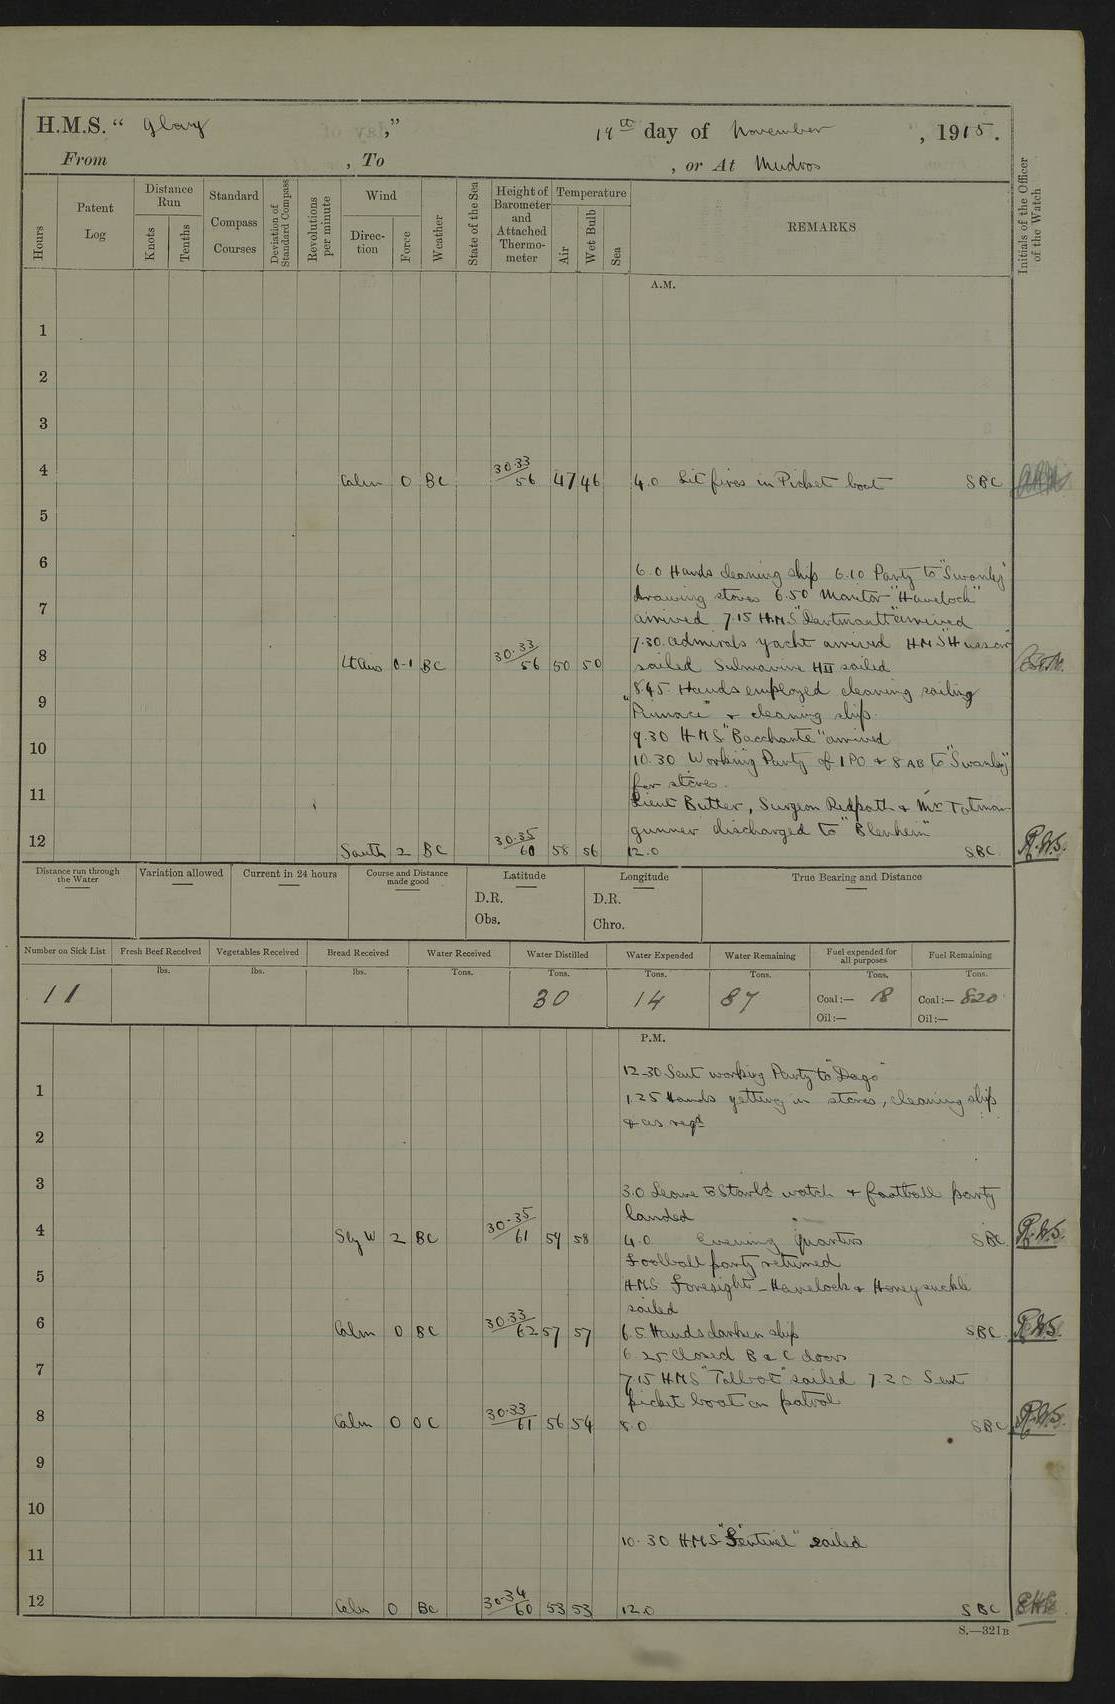 H.M.S. “ Glory ,” 19th day of November , 1915.
From , To , or At Mudros
Hours
Patent Log
Distance Run
Knots
Tenths
Standard Compass Courses
Deviation of Standard Compass
Revolutions per minute
Wind
Direction
Force
Weather
State of the Sea
Height of Barometer and Attached Thermometer
Temperature
Air
Wet Bulb
Sea
REMARKS
Initials of the Officer of the Watch
A.M.
1
2
3
4 Calm 0 BC 30.33/56 47 46 4.0 Lit fires in Picket boat SBC
5
6
6.0 Hands cleaning ship 6.10 Party to "Swanley"
7 drawing stores 6.50 Monitor "Havelock"
arrived 7.15 HMS "Dartmouth" arrived
7.30 Admirals yacht arrived HMS "Hussar"
8 Lt airs 0-1 BC 30.33/56 50 50 sailed Submarine HII sailed
8.45 Hands employed cleaning sailing
9 "Pinnace" & cleaning ship.
9.30 HMS "Bacchante" arrived
10 10.30 Working Party of 1 PO & 8 AB to "Swanley"
for stores.
11 Lieut Butter, Surgeon Redpath & Mr Totman
gunner discharged to "Blenheim"
12 South 2 BC 30.35/60 58 56 12.0 SBC
Distance run through the Water
Variation allowed
Current in 24 hours
Course and Distance made good
Latitude
D.R.
Obs.
Longitude
D.R.
Chro.
True Bearing and Distance
Number on Sick List
Fresh Beef Received
Vegetables Received
Bread Received
Water Received
Water Distilled
Water Expended
Water Remaining
Fuel expended for all purposes
Fuel Remaining
lbs. lbs. lbs. Tons. Tons. Tons. Tons. Tons. Tons.
11 30 14 87 Coal:— 18 Coal:— 820
Oil:— Oil:—
P.M.
12.30 Sent working Party to "Dago"
1 1.25 Hands getting in stores, cleaning ship
& as reqd
2
3 3.0 Leave to Starbd watch & football party
landed
4 Sly W 2 BC 30.35/61 59 58 4.0 Evening quarters SBC
Football party returned
5 HMS Foresight - Havelock & Honeysuckle
sailed
6 Calm 0 BC 30.33/62 57 57 6.5 Hands darken ship SBC
6.25 Closed B & C doors
7 7.15 HMS "Talbot" sailed 7.20 Sent
picket boat on patrol
8 Calm 0 OC 30.33/61 56 54 8.0 SBC
9
10
10.30 HMS "Sentinel" sailed
11
12 Calm 0 BC 30.34/60 53 53 12.0 SBC
S.—321B